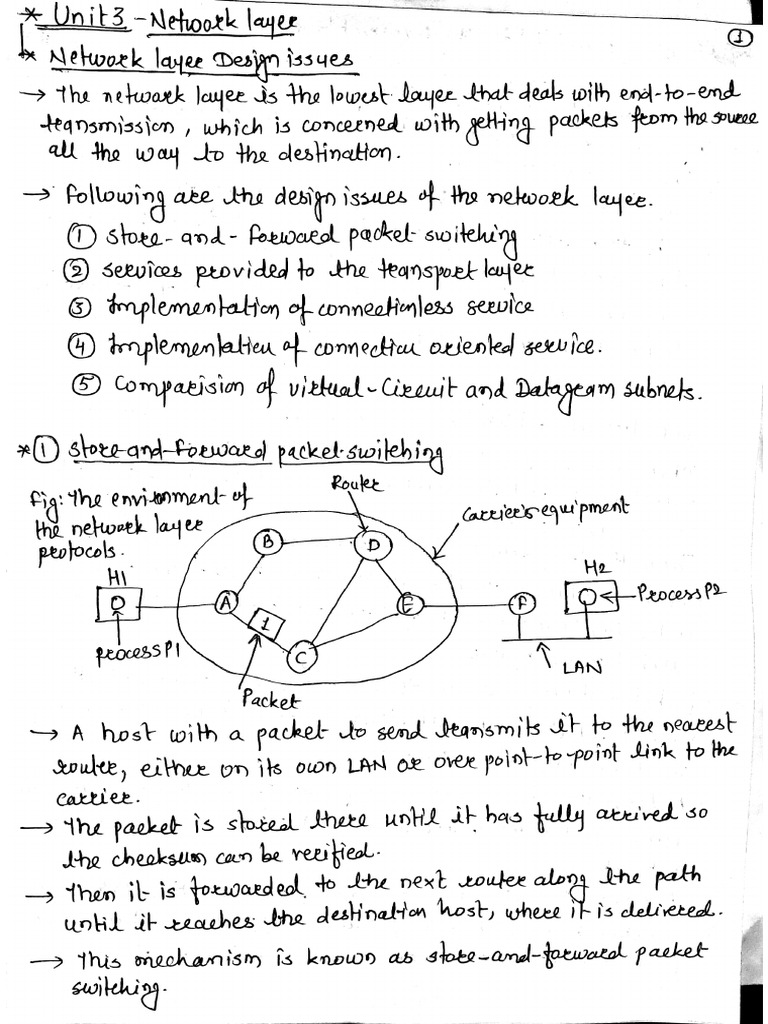 * Unit 3 - Network layer
1
* Network layer Design issues
→ The network layer is the lowest layer that deals with end-to-end
transmission, which is concerned with getting packets from the source
all the way to the destination.
→ Following are the design issues of the network layer.
① store-and-forward packet switching
② services provided to the transport layer
③ Implementation of connectionless service
④ Implementation of connection oriented service.
⑤ Comparision of virtual-Circuit and Datagram subnets.
* ① Store-and-forward packet switching
Fig: The environment of
the network layer
protocols.
Router
Carrier's equipment
B
D
H1
H2
A
1
E
F
Process P2
process P1
C
LAN
Packet
→ A host with a packet to send transmits it to the nearest
router, either on its own LAN or over point-to-point link to the
carrier.
→ The packet is stored there until it has fully arrived so
the checksum can be verified.
→ Then it is forwarded to the next router along the path
until it reaches the destination host, where it is delivered.
→ This mechanism is known as store-and-forward packet
switching.